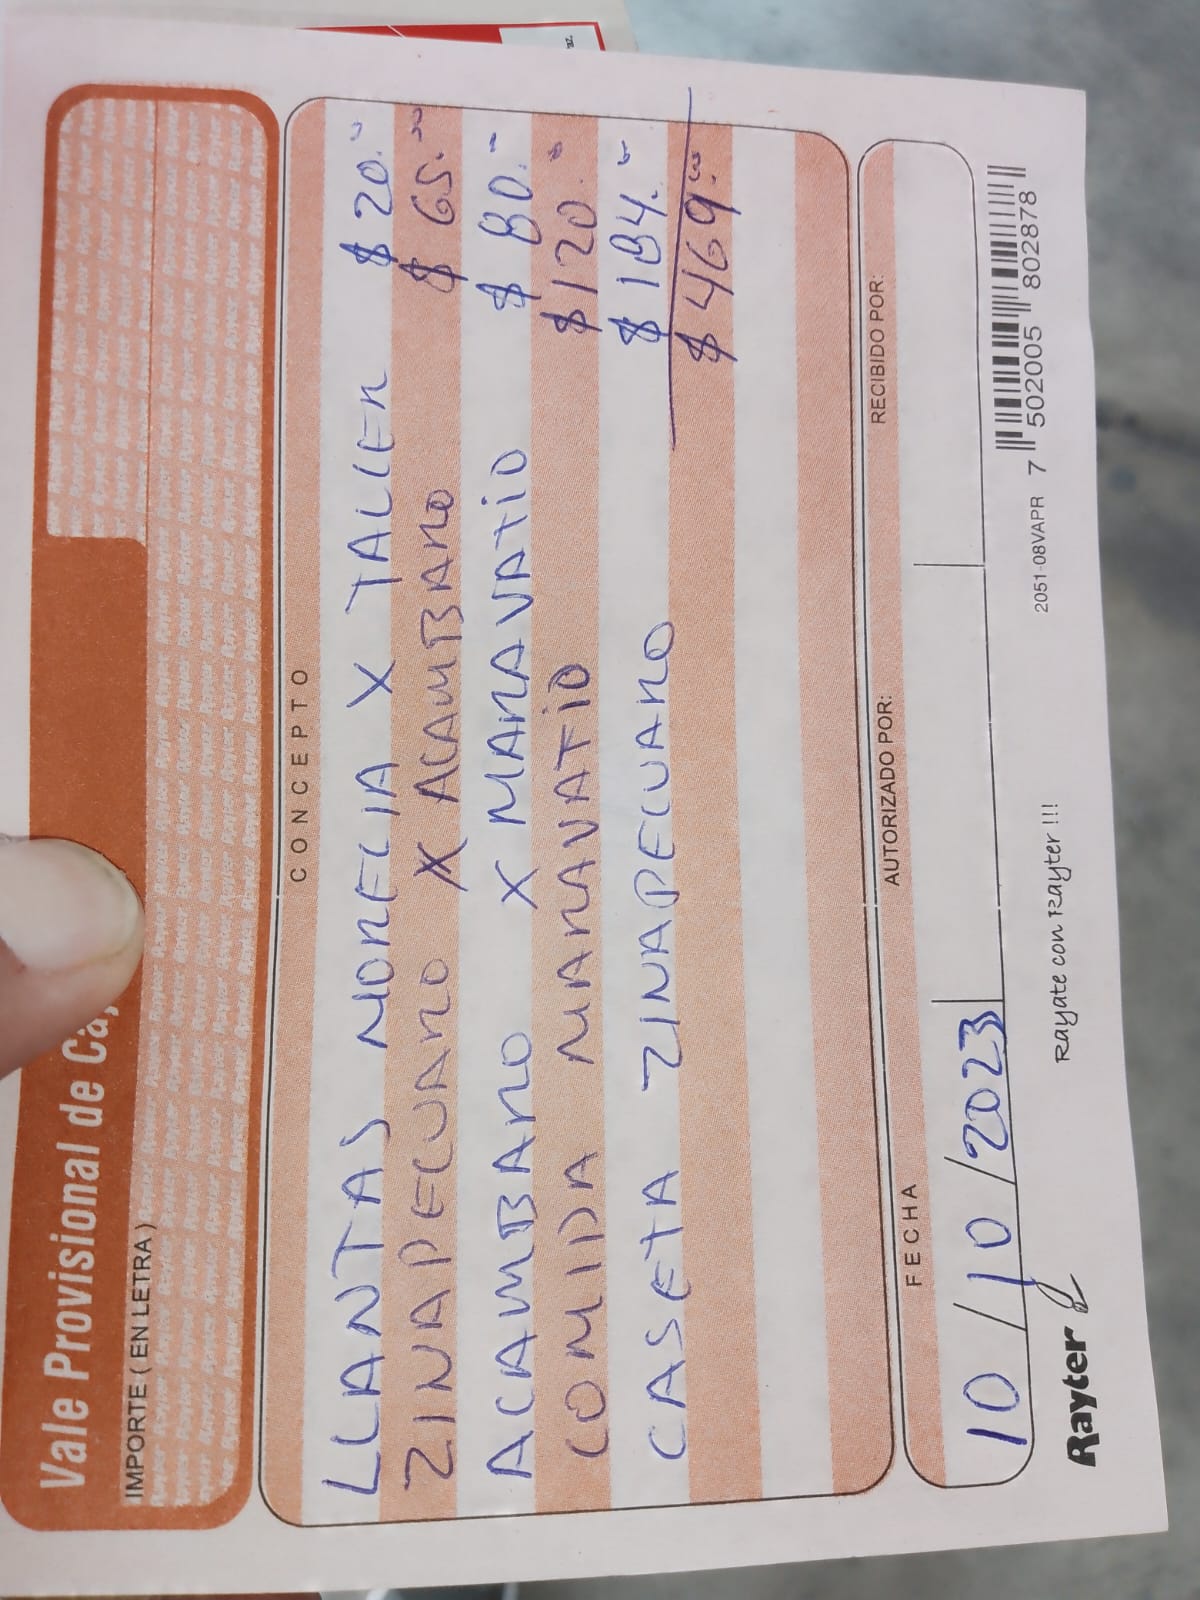 Vale Provisional de Ca
IMPORTE ( EN LETRA )
CONCEPTO
LLANTAS MORELIA X TALLER $ 20.00
ZINAPECUARO X ACAMBARO $ 65.00
ACAMBARO X MARAVATIO $ 80.-
COMIDA MARAVATIO $ 120.
CASETA ZINAPECUARO $ 184.
$ 469.00
FECHA AUTORIZADO POR: RECIBIDO POR:
10/10/2023
Rayter Rayate con Rayter !!! 2051-08VAPR 7 502005 802878